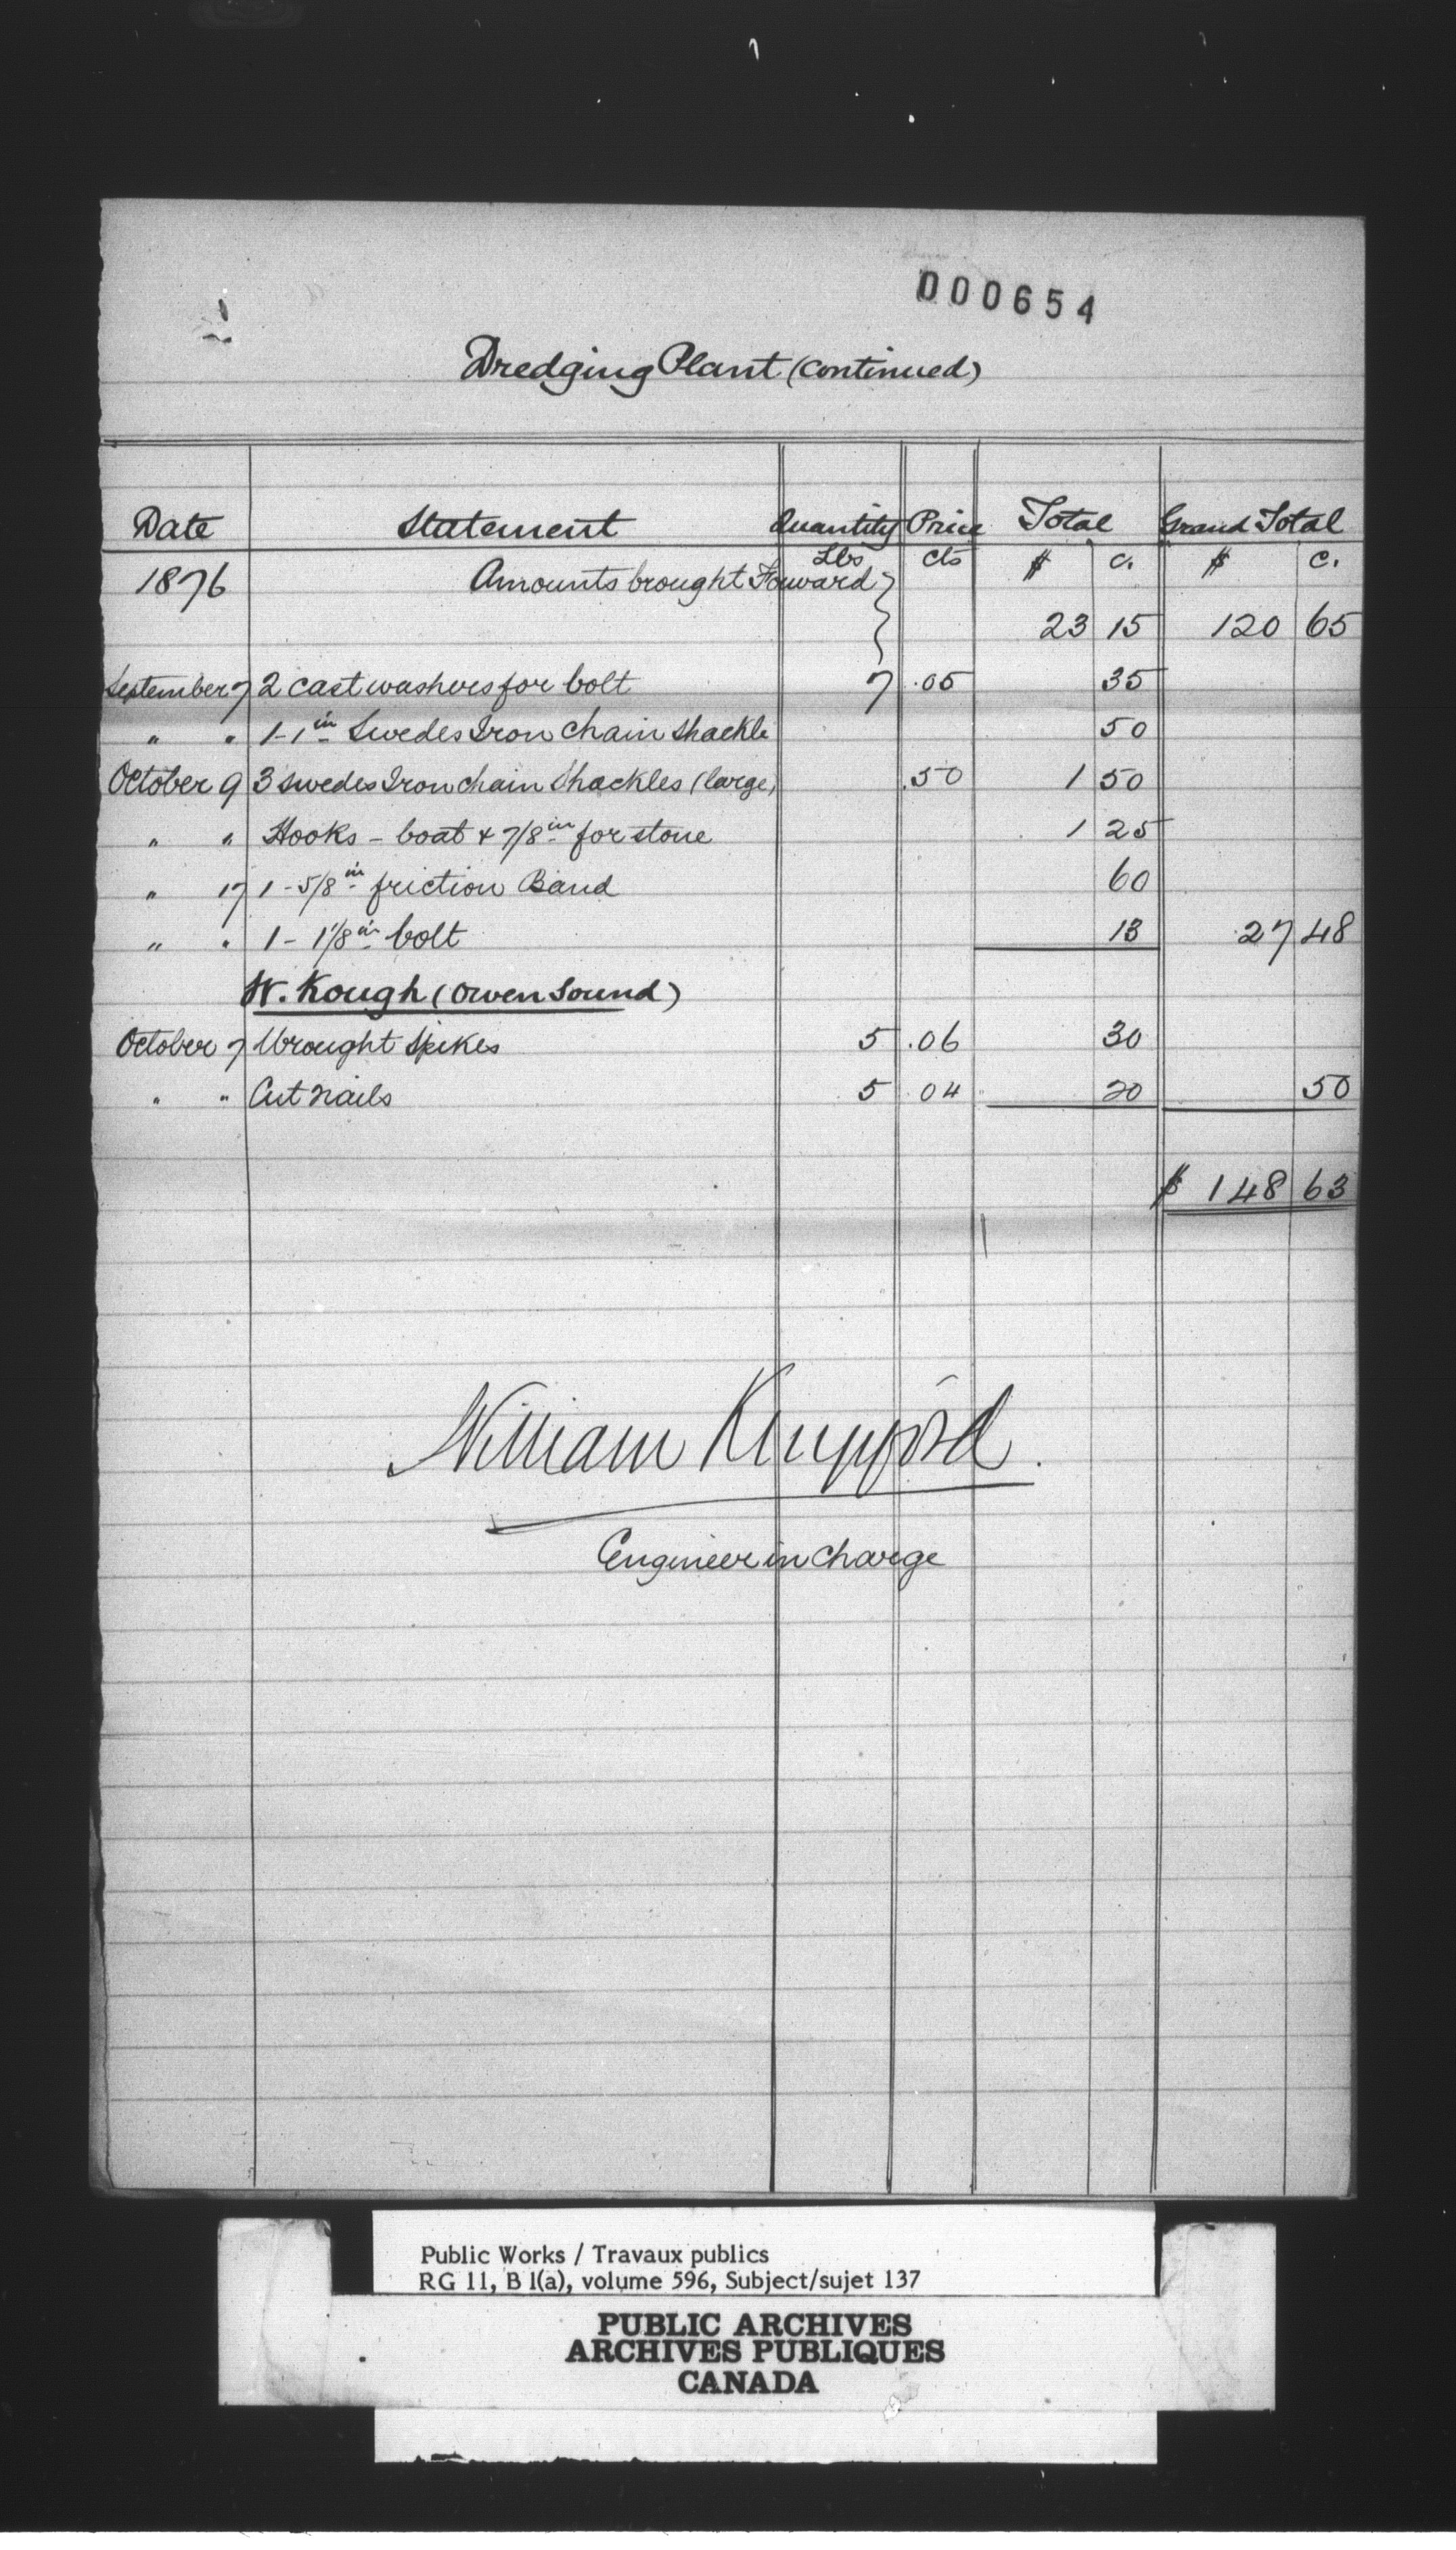 000654
Dredging Plant (continued)
Date Statement Quantity Price Total Grand Total
Lbs cts $ c. $ c.
1876 Amounts brought Forward }
23 15 120 65
September 7 2 cast washers for bolt 7 .05 35
" " 1-1in Swedes Iron chain shackle 50
October 9 3 Swedes Iron chain Shackles (large) .50 1 50
" " Hooks - boat & 7/8in for stone 1 25
" 17 1-5/8in friction Band 60
" " 1-1 1/8in bolt 13 27 48
W. Kough (Owen Sound)
October 7 Wrought Spikes 5 .06 30
" " Cut nails 5 .04 20 50
$ 148 63
William Kingsford.
Engineer in charge
Public Works / Travaux publics
RG 11, B 1(a), volume 596, Subject/sujet 137
PUBLIC ARCHIVES
ARCHIVES PUBLIQUES
CANADA